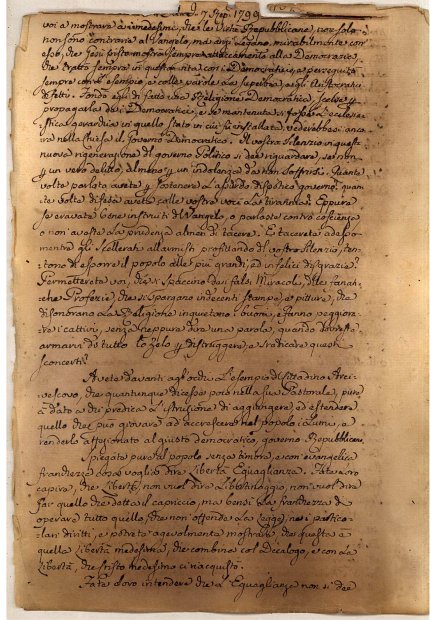 7 1799
voi a mostrare à medesimi, che le Virtù Repubblicane, non solo
non sono contrarie al Vangelo, ma anzi legano mirabilmente con
esso, che Gesù Cristo mostrò sempre attaccamento alla Democrazia,
che trattò sempre in con i Democratici, e perseguitò
sempre con l'esempio, e colle parole La superbia, e gli Aristocratici
di fatti. Fondò egli di fatto una Religione Democratica, scelse
propagarla dodici Democratici, e se mantenuta si fosse l'Eccle
siastica gerarchia in quello stato in cui fù installata, vederebbesi anco
ra nella chiesa il Governo Democratico. Il vostro Silenzio in questa
nuova rigenerazione del governo Politico si dee riguardare, se non
un vero delitto, almeno un indolenza da non soffrirsi. Quante
volte parlato avete sostenere L'assurdo dispotico governo? quan
te volte difesa avete colle vostre voci La tirannia? Eppure
se eravate bene instruiti del Vangelo, o parlaste contro coscienza
o non aveste La prudenza almen di tacere. E tacerete adesso
mentre gli Scellerati allarmisti profittando del vostro Silenzio, ten
tono di esporre il popolo alle più grandi, ed infelici disgrazie?
Permetterete voi, che si spaccino dei falsi Miracoli, delle fanati
che Profezie, che si spargano indecenti stampe, e pitture, che
disonorano La Religione inquietono i buoni, e fanno peggiora
re i cattivi, senza neppure dire una parola, quando dovreste
armarvi di tutto lo zelo distruggere, e sradicare questi
sconcerti?
Avete davanti agl'occhi L'esempio di Cittadino Arci
vescovo, che quantunque dicesse poco nella sua Pastorale, pure
à dato a chi predica L'istruzione di aggiungere, ed estendere
quello che può giovare ad accrescere nel popolo i Lumi, e
renderlo affezionato al giusto democratico governo Repubblicano.
Spiegate pure al popolo senza timore, e con evangelica
franchezza cosa voglia dire Libertà Eguaglianza. Fate loro
capire, che Libertà, non vuol dire Libertinaggio, non vuol dire
far quello che detta il capriccio, ma bensì La franchezza di
operare tutto quello, che non offende La Legge, ne i partico
lari diritti, e potrete agevolmente mostrare, che questa è
quella Libertà medesima, che combina col Decalogo, e con La
Libertà, che Cristo medesimo ci riacquistò.
Fate Loro intendere che L'Eguaglianza non si dee